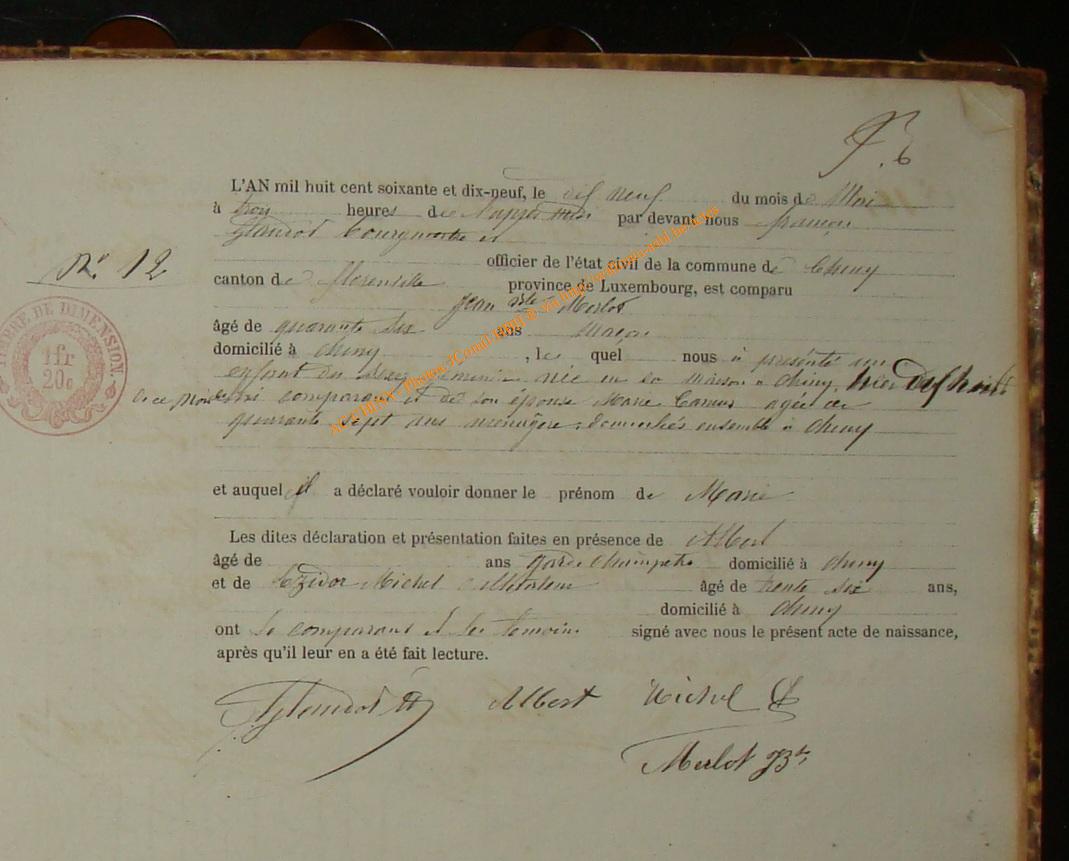 F. 6
L'AN mil huit cent soixante et dix-neuf, le dix neuf du mois de Mai
à trois heures de l'après midi par devant nous françois
Glaudot bourgmestre et
officier de l'état civil de la commune de Chiny
N° 12
canton de Florenville province de Luxembourg, est comparu
Jean Bte Merlot
âgé de quarante six ans maçon
domicilié à Chiny, le quel nous a présenté un
enfant du sexe féminin née en sa maison à Chiny, hier dix huit
de ce mois comparant et de son épouse Marie Camus agée de
quarante sept ans ménagère, domiciliés ensemble à Chiny
et auquel il a déclaré vouloir donner le prénom de Marie
Les dites déclaration et présentation faites en présence de Albert
âgé de ans garde champetre domicilié à Chiny
et de Michel âgé de trente six ans,
domicilié à Chiny
ont le comparant et les témoins signé avec nous le présent acte de naissance,
après qu'il leur en a été fait lecture.
Glaudot Albert Michel
Merlot JBte
TIMBRE DE DIMENSION
1fr
20c